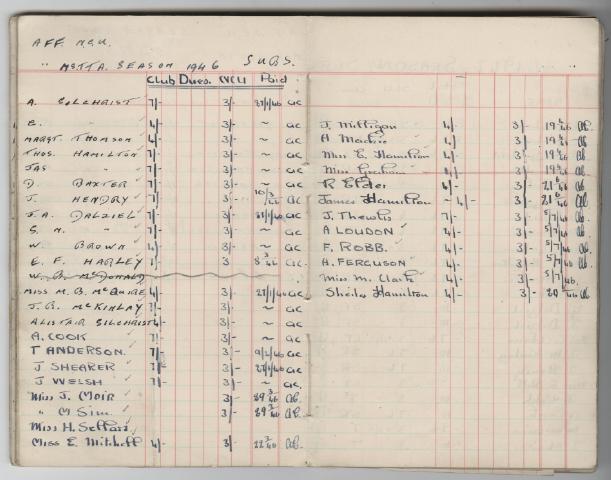 AFF. N.C.U.
" MSTTA. SEASON 1946 SUBS.
Club Dues. NCU Paid
A. GILCHRIST 7/- 3/- 27/1/46 GC
E. " 4/- 3/- ~ GC
MARGT. THOMSON 4/- 3/- ~ GC
THOS. HAMILTON 7/- 3/- ~ GC
JAS " 7/- 3/- ~ GC
D. BAXTER 7/- 3/- ~ GC
J. HENDRY 7/- 3/- 10/3/46 GC
J.A. DALZIEL 7/- 3/- GC
S. M. " 7/- 3/- ~ GC
W. BROWN 4/- 3/- ~ GC
E. F. HARLEY 7/- 3 8 3/46 GC
W. B. McDONALD
MISS M. B. McGUIRE 4/- 3/- 27/1/46 GC
J. B. McKINLAY 7/- 3/- ~ GC
ALISTAIR GILCHRIST 4/- 3/- ~ GC
A. COOK 7/- 3/- ~ GC
T ANDERSON. 7/- 3/- GC
J SHEARER 7/- 3/- 27/1/46 GC
J WELSH 7/- 3/- ~ GC
Miss J. Moir 3/- 29 3/46
" M Sim 3/- 29 3/46
Miss H.
Miss E. Mitchell 4/- 3/- 22 46
J. Milligan 4/- 3/- 19 46
A Mackie 4/- 3/- 19 46
Miss E. Hamilton 4/- 3/- 19 46
Miss 4/- 3/- 19 46
R Elder 4/- 3/- 21 46
James Hamilton ~ 4/- 3/- 21 46
J. Thewlis 7/- 3/- 5/7/46
A LOUDON 4/- 3/- 5/7/46
F. ROBB. 4/- 3/- 5/7/46
H. FERGUSON 4/- 3/- 5/7/46
Miss M. Clark 4/- 3/- 5/7/46
Sheila Hamilton 4/- 3/- 20 46